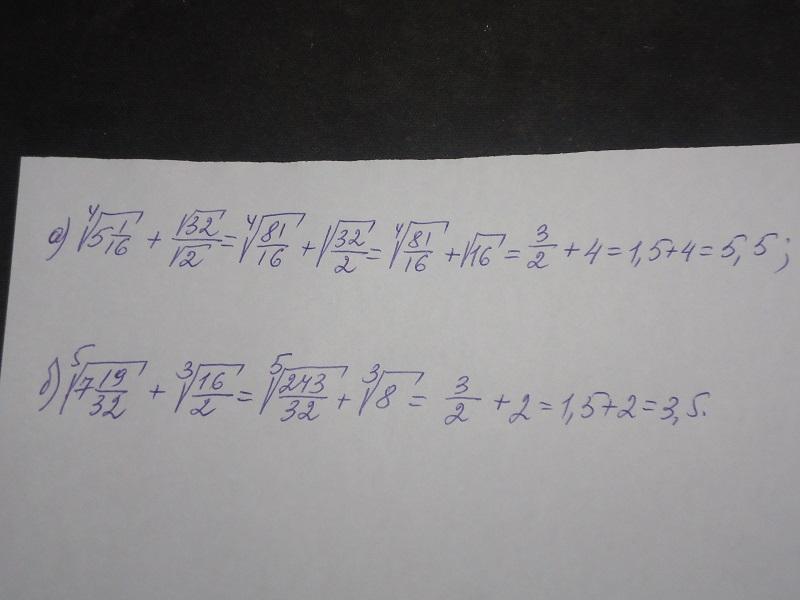 а) ⁴√(5 1/16) + √32/√2 = ⁴√(81/16) + √(32/2) = ⁴√(81/16) + √16 = 3/2 + 4 = 1,5 + 4 = 5,5;
б) ⁵√(7 19/32) + ³√(16/2) = ⁵√(243/32) + ³√8 = 3/2 + 2 = 1,5 + 2 = 3,5.